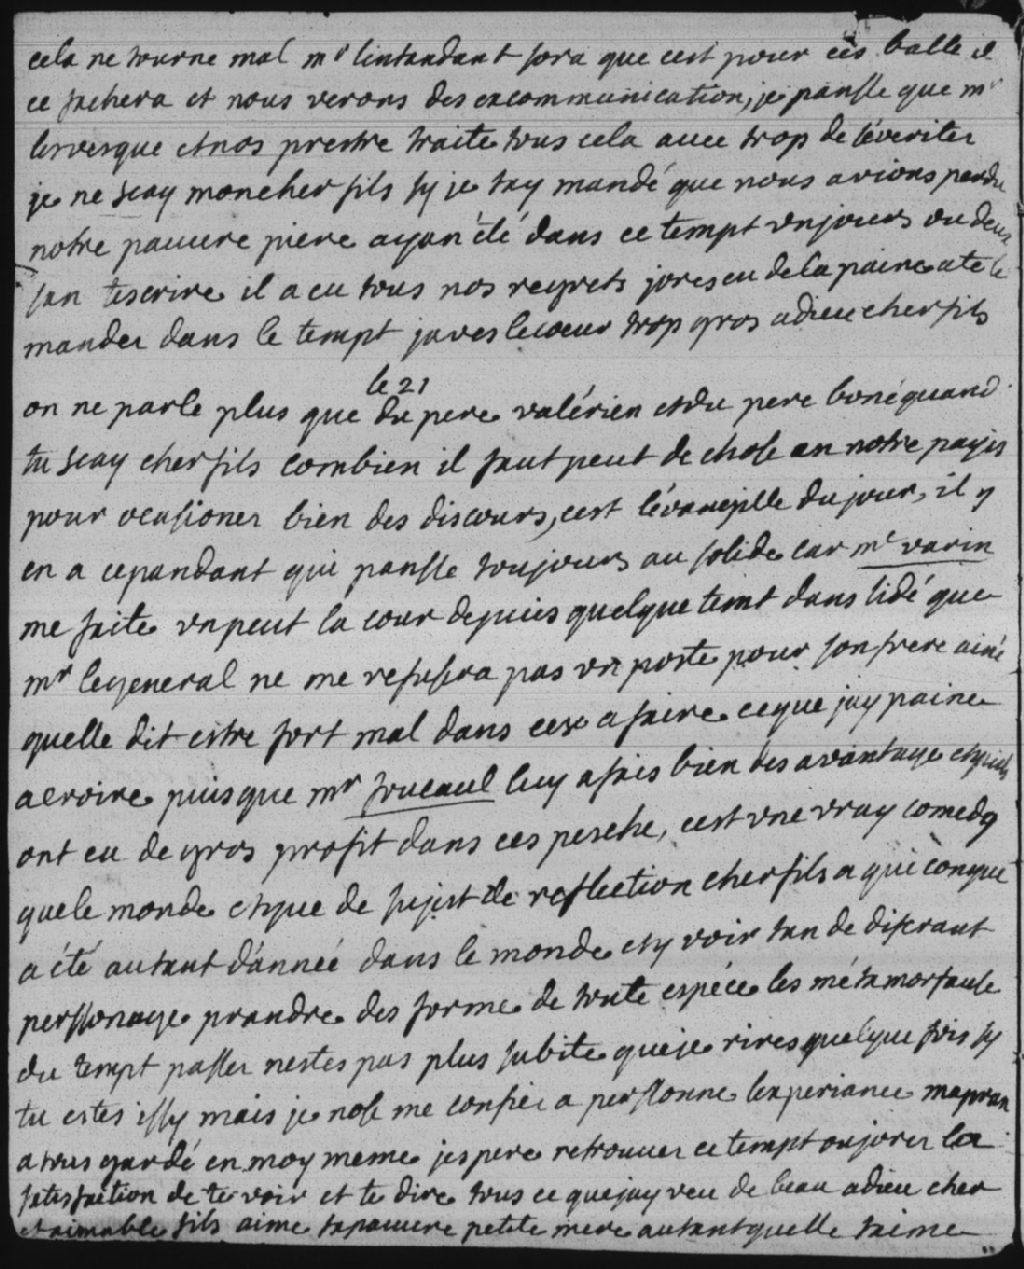 cela ne tourne mal mr lintandant sora que cest pour ces balle il
ce fachera et nous verons des excommunication, je pansse que mr
lesvesque et nos prestre traite tous cela avec trop de séveriter
je ne scay moncher fils sy je tay mandé que nous avions perdu
notre pauvre piere ayan été dans ce tempt un jours ou deux
san tescrire il a eu tous nos regrets jores eu de la paine a te le
mander dans le tempt javes lecoeur trop gros adieu cher fils
le 21
on ne parle plus que du pere valérien et du pere bonéquand
tu scay cher fils combien il faut peut de chose en notre payis
pour ocasioner bien des discours, cest lévangille du jour, il y
en a cepandant qui pansse toujours au solide car me varin
me faite un peut la cour depuis quelque temt dans lidé que
mr legeneral ne me refusera pas un poste pour son frere ainé
quelle dit estre fort mal dans ces afaire ceque jay paine
a croire puisque mr foucaul luy a fais bien des avantage
ont eu de gros profit dans ces pesche, cest une vray comedy
que le monde et que de sujest de reflection cher fils a qui conque
a été autant dannée dans le monde et y voir tan de diferant
perssonage prandre des forme de toute espéce les métamorfause
du tempt passer nestes pas plus subite que je rires quelque fois sy
tu estes issy mais je nose me confier a perssonne lexperiance mapran
a tous gardé en moy meme jespere retrouver ce tempt ou jores la
satisfaction de te voir et te dire tous ce que jay veu de beau adieu cher
et aimable fils aime ta pauvre petite mere autant quelle taime